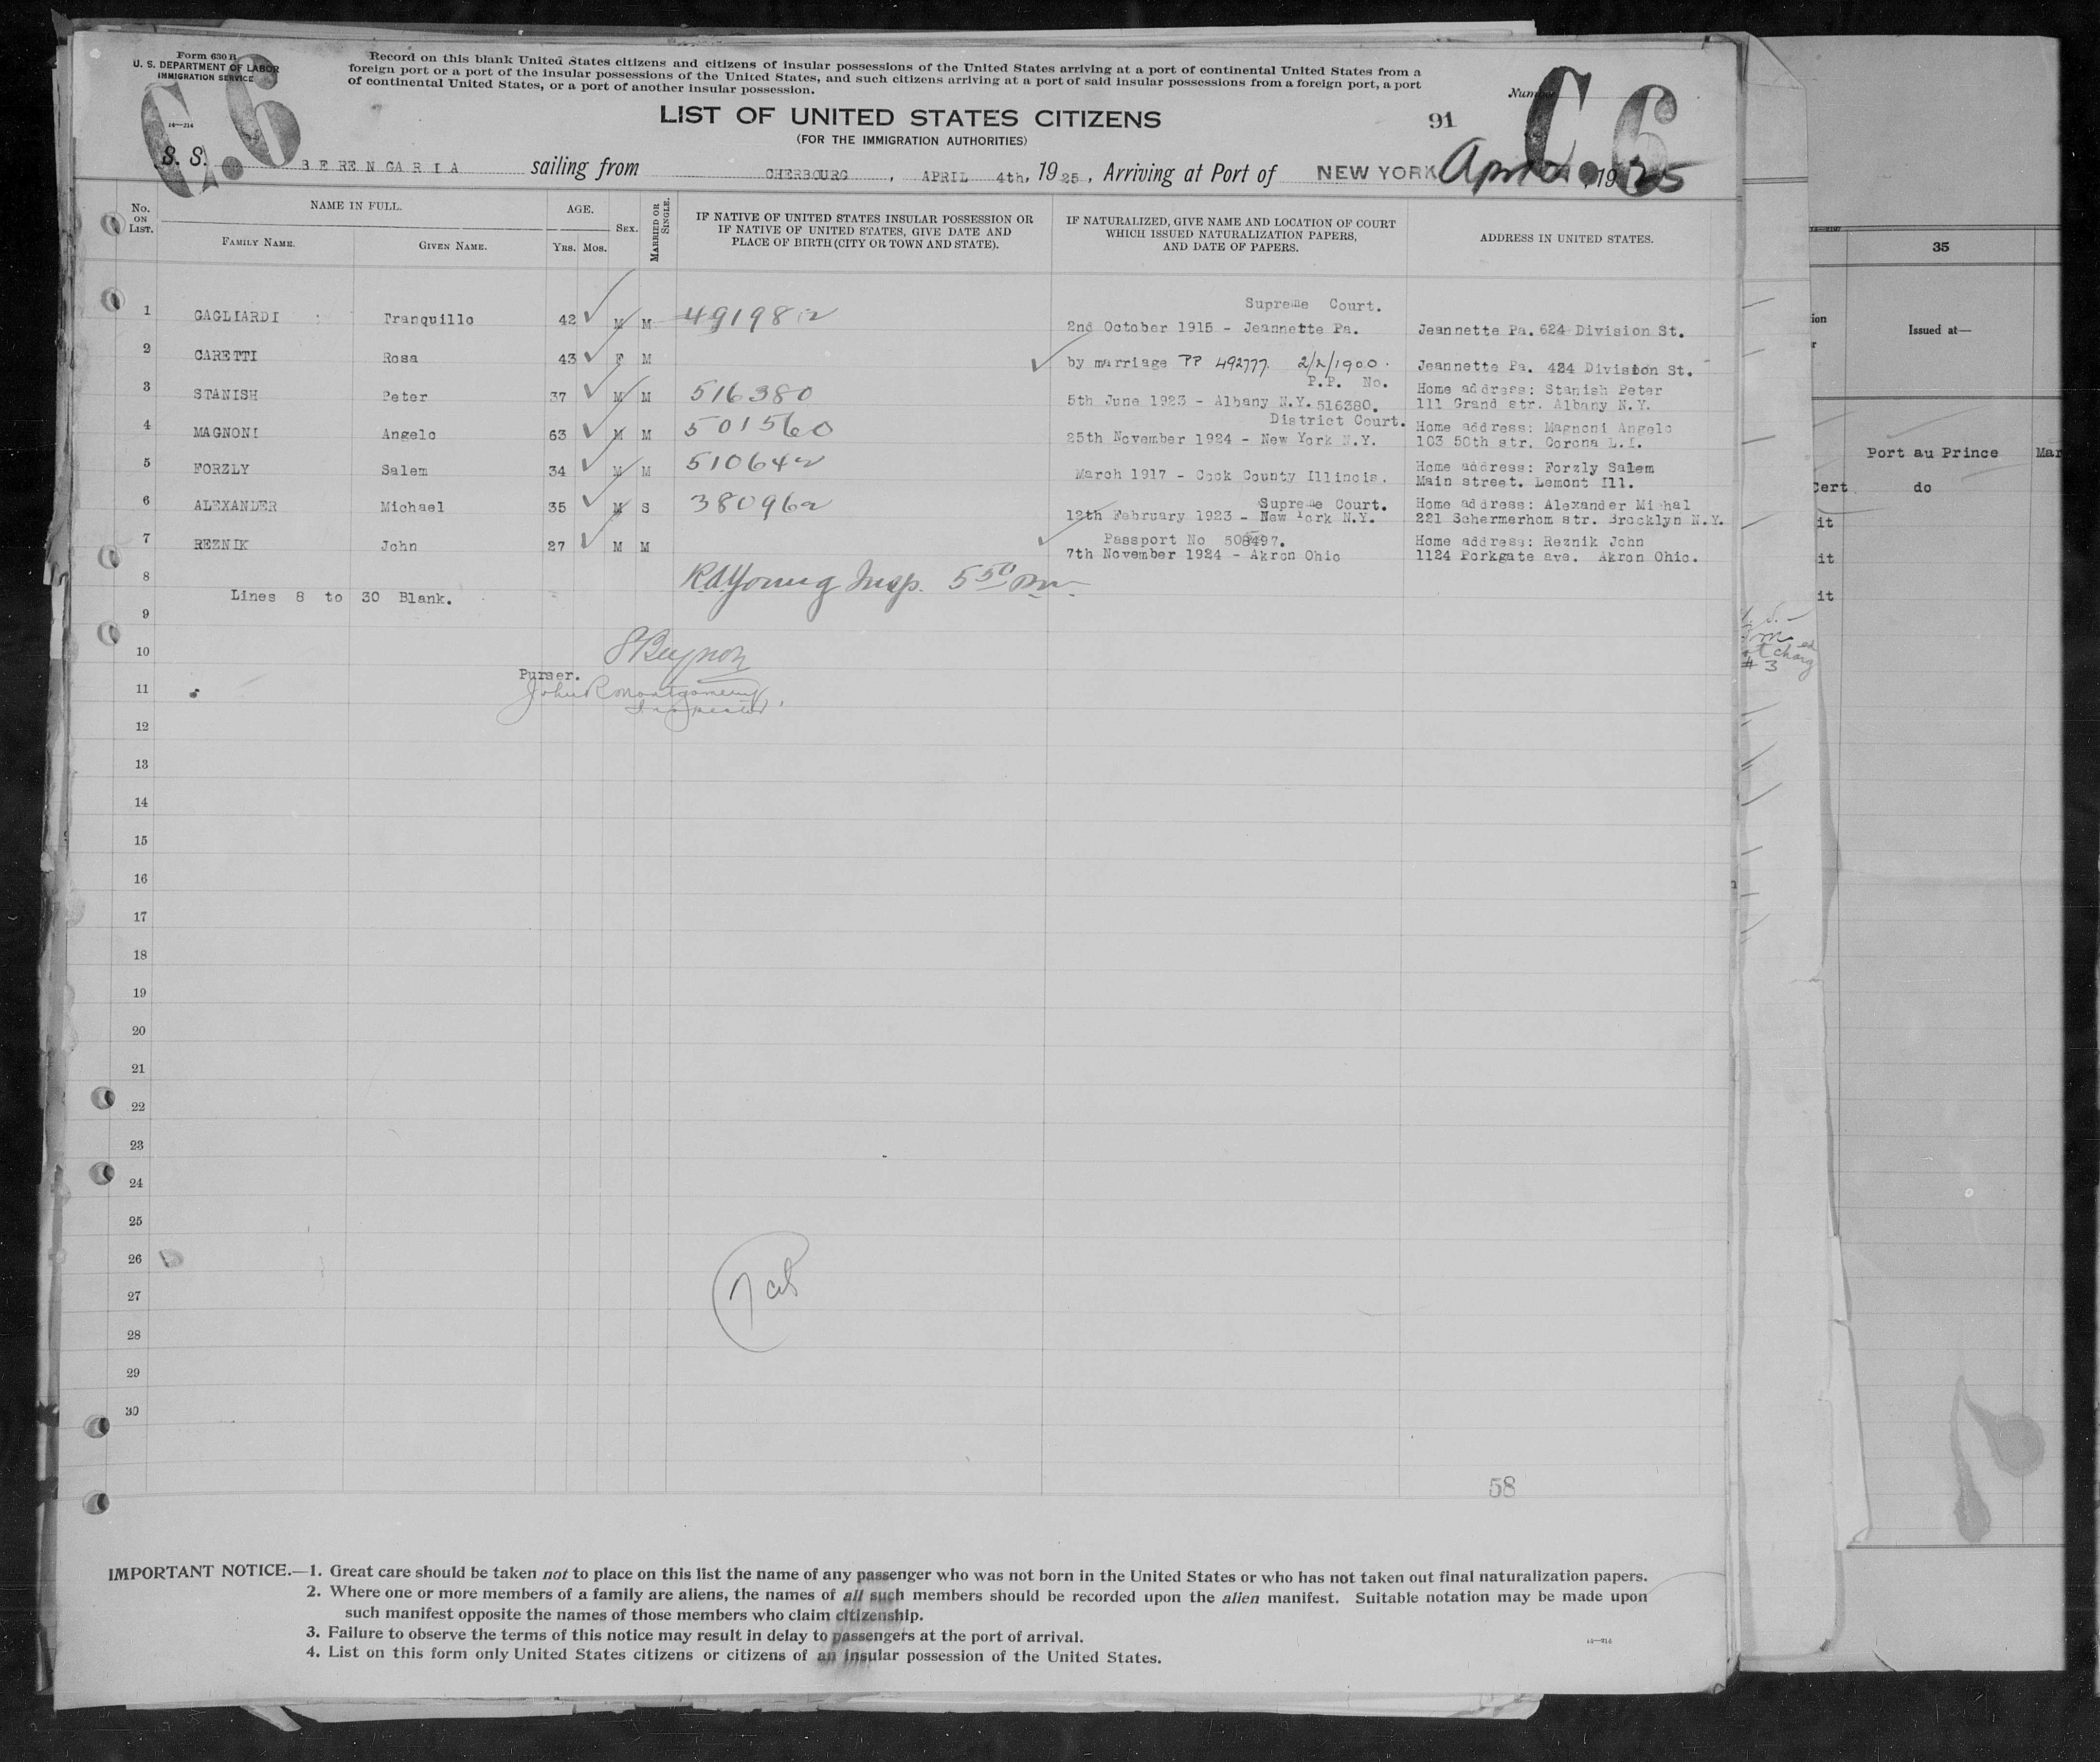 Form 630 B
U. S. DEPARTMENT OF LABOR
IMMIGRATION SERVICE
14—214
Record on this blank United States citizens and citizens of insular possessions of the United States arriving at a port of continental United States from a
foreign port or a port of the insular possessions of the United States, and such citizens arriving at a port of said insular possessions from a foreign port, a port
of continental United States, or a port of another insular possession.
C.6
Number
C.6
LIST OF UNITED STATES CITIZENS
91
(FOR THE IMMIGRATION AUTHORITIES)
S. S. BERENGARIA sailing from CHERBOURG, APRIL 4th, 1925, Arriving at Port of NEW YORK April , 1925
No. ON LIST. NAME IN FULL. AGE. SEX. MARRIED OR SINGLE. IF NATIVE OF UNITED STATES INSULAR POSSESSION OR IF NATIVE OF UNITED STATES, GIVE DATE AND PLACE OF BIRTH (CITY OR TOWN AND STATE). IF NATURALIZED, GIVE NAME AND LOCATION OF COURT WHICH ISSUED NATURALIZATION PAPERS, AND DATE OF PAPERS. ADDRESS IN UNITED STATES.
FAMILY NAME. GIVEN NAME. YRS. MOS.
Supreme Court.
1 GAGLIARDI Tranquillo 42 M M 491982 2nd October 1915 - Jeannette Pa. Jeannette Pa. 624 Division St.
2 CARETTI Rosa 43 F M by marriage PP 492777. 2/2/1900. Jeannette Pa. 424 Division St.
P.P. No. Home address: Stanish Peter
3 STANISH Peter 37 M M 516380 5th June 1923 - Albany N.Y. 516380. 111 Grand str. Albany N.Y.
District Court. Home address: Magnoni Angelo
4 MAGNONI Angelo 63 M M 501560 25th November 1924 - New York N.Y. 103 50th str. Corona L.I.
Home address: Forzly Salem
5 FORZLY Salem 34 M M 510642 March 1917 - Cook County Illinois. Main street. Lemont Ill.
Supreme Court. Home address: Alexander Mishal
6 ALEXANDER Michael 35 M S 380962 12th February 1923 - New York N.Y. 221 Schermerhom str. Brooklyn N.Y.
Passport No 508497. Home address: Reznik John
7 REZNIK John 27 M M 7th November 1924 - Akron Ohio 1124 Porkgate ave. Akron Ohio.
8 R.A. Young Insp. 5 50 pm.
Lines 8 to 30 Blank.
9
10
Purser.
John R Montgomery,
Inspector
11
12
13
14
15
16
17
18
19
20
21
22
23
24
25
26
27
28
29
30
58
IMPORTANT NOTICE.—1. Great care should be taken not to place on this list the name of any passenger who was not born in the United States or who has not taken out final naturalization papers.
2. Where one or more members of a family are aliens, the names of all such members should be recorded upon the alien manifest. Suitable notation may be made upon
such manifest opposite the names of those members who claim citizenship.
3. Failure to observe the terms of this notice may result in delay to passengers at the port of arrival.
4. List on this form only United States citizens or citizens of an insular possession of the United States.
14—214
35
Issued at—
Port au Prince
do
Cert
it
it
it
# 3